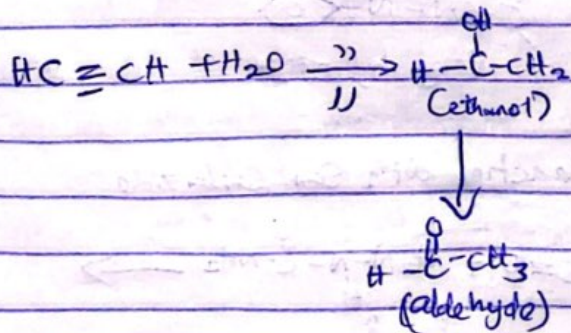 OH
HC≡CH + H₂O —〃→ H-C-CH₂
〃 (ethanol)
↓
O
H-C-CH₃
(aldehyde)